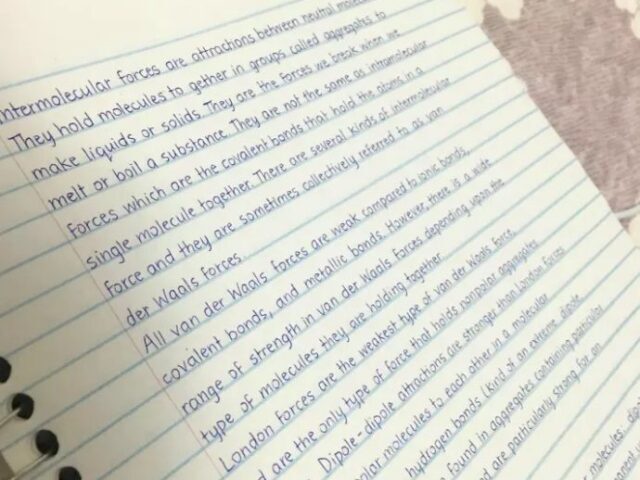 ntermolecular forces are attractions between neutral
They hold molecules to gether in groups called aggregates to
make liquids or solids. They are the forces we break when we
melt or boil a substance. They are not the same as intramolecular
forces which are the covalent bonds that hold the atoms in a
single molecule together. There are several kinds of intermolecular
force and they are sometimes collectively referred to as van
der Waals forces.
All van der Waals forces are weak compared to ionic bonds,
covalent bonds, and metallic bonds. However, there is a wide
range of strength in van der Waals forces depending upon the
type of molecules they are holding together
London forces are the weakest type of van der Waals force
d are the only type of force that holds nonpolar aggregates
Dipole-dipole attractions are stronger than London forces
olar molecules to each other in a molecular
hydrogen bonds (kind of an extreme dipole
found in aggregates containing particular
nd are particularly strong for an